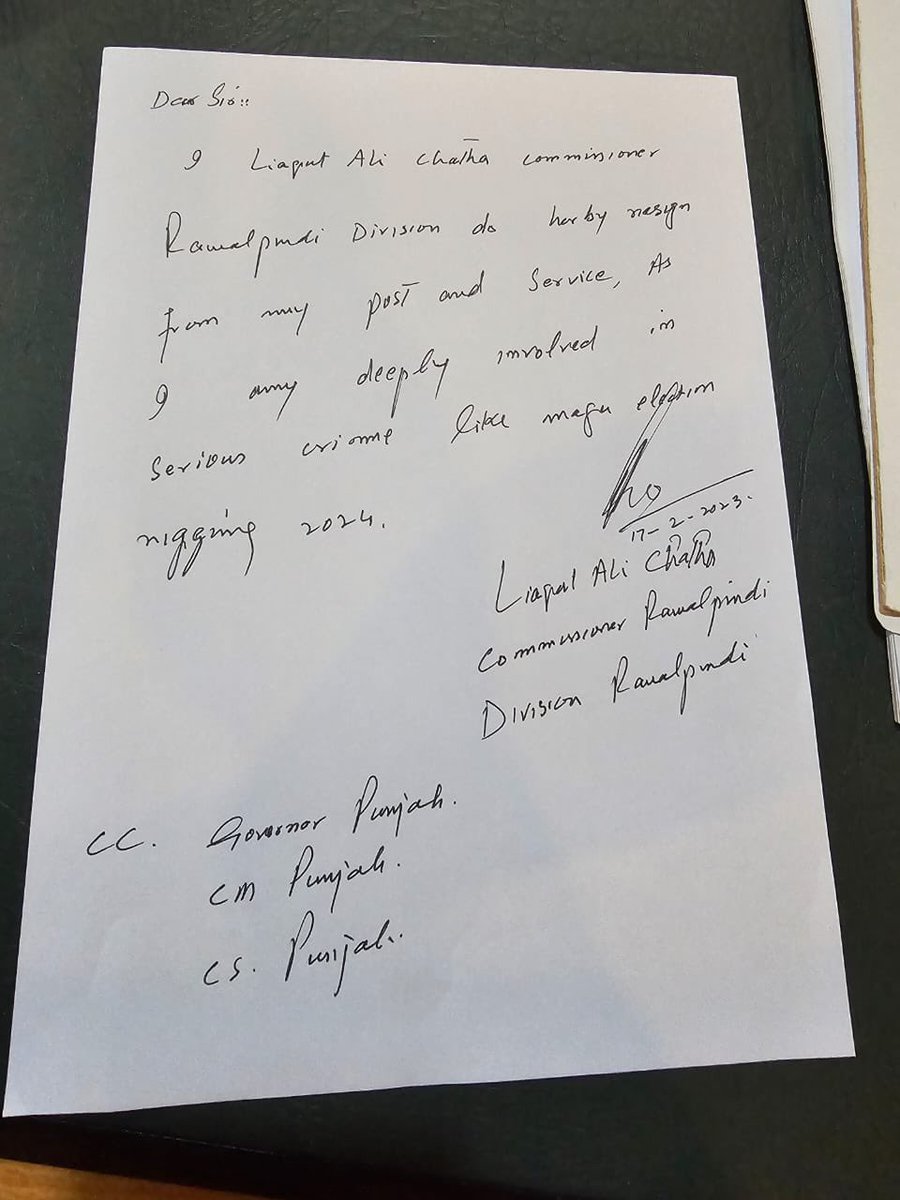 Dear Sir::
I Liaqat Ali Chatha commissioner
Rawalpindi Division do herby resign
from my post and Service, As
I amy deeply involved in
Serious crime like mega election
rigging 2024.
17-2-2023.
Liaqat Ali Chatha
Commissioner Rawalpindi
Division Rawalpindi
CC. Governor Punjab.
CM Punjab.
CS. Punjab.